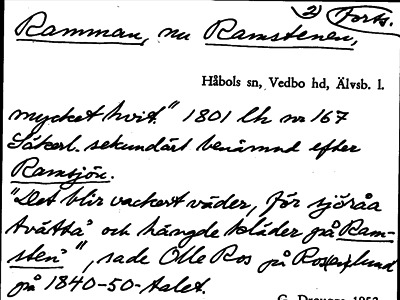 2) Forts.
Ramman, nu Ramstenen,
Håbols sn, Vedbo hd, Älvsb. l.
mycket hvit." 1801 lh nr 167
Säkerl. sekundärt benämnd efter
Ramsjön.
"Det blir vackert väder, för sjöråa
tvättà och hängde kläder på Ram-
sten", sade Olle Ros på Roselund
på 1840-50-talet.